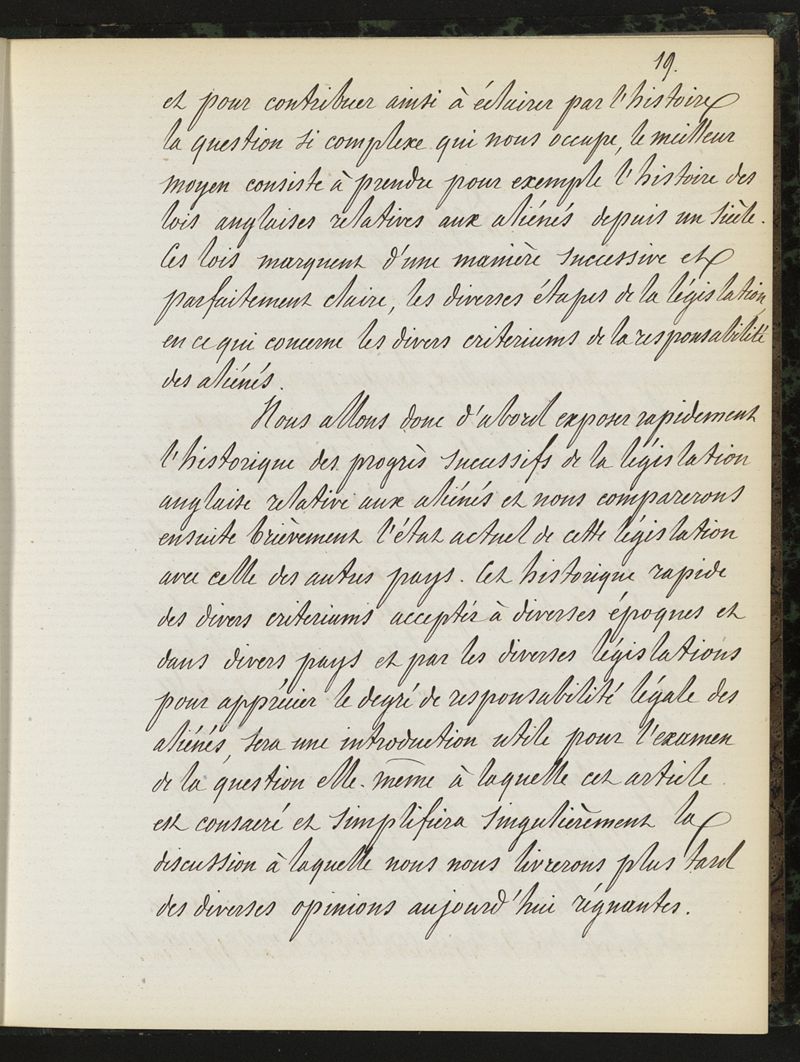 19.
et pour contribuer ainsi à éclairer par l'histoire
la question si complexe qui nous occupe, le meilleur
moyen consiste à prendre pour exemple l'histoire des
lois anglaises relatives aux aliénés depuis un siècle.
Ces lois marquent d'une manière successive et
parfaitement claire, les diverses étapes de la législation,
en ce qui concerne les divers criteriums de la responsabilité
des aliénés.
Nous allons donc d'abord exposer rapidement
l'historique des progrès successifs de la législation
anglaise relative aux aliénés et nous comparerons
ensuite brièvement l'état actuel de cette législation
avec celle des autres pays. Cet historique rapide
des divers criteriums acceptés à diverses époques et
dans divers pays et par les diverses législations
pour apprécier le degré de responsabilité légale des
aliénés, sera une introduction utile pour l'examen
de la question elle-même à laquelle cet article
est consacré et simplifiera singulièrement la
discussion à laquelle nous nous livrerons plus tard
des diverses opinions aujourd'hui régnantes.